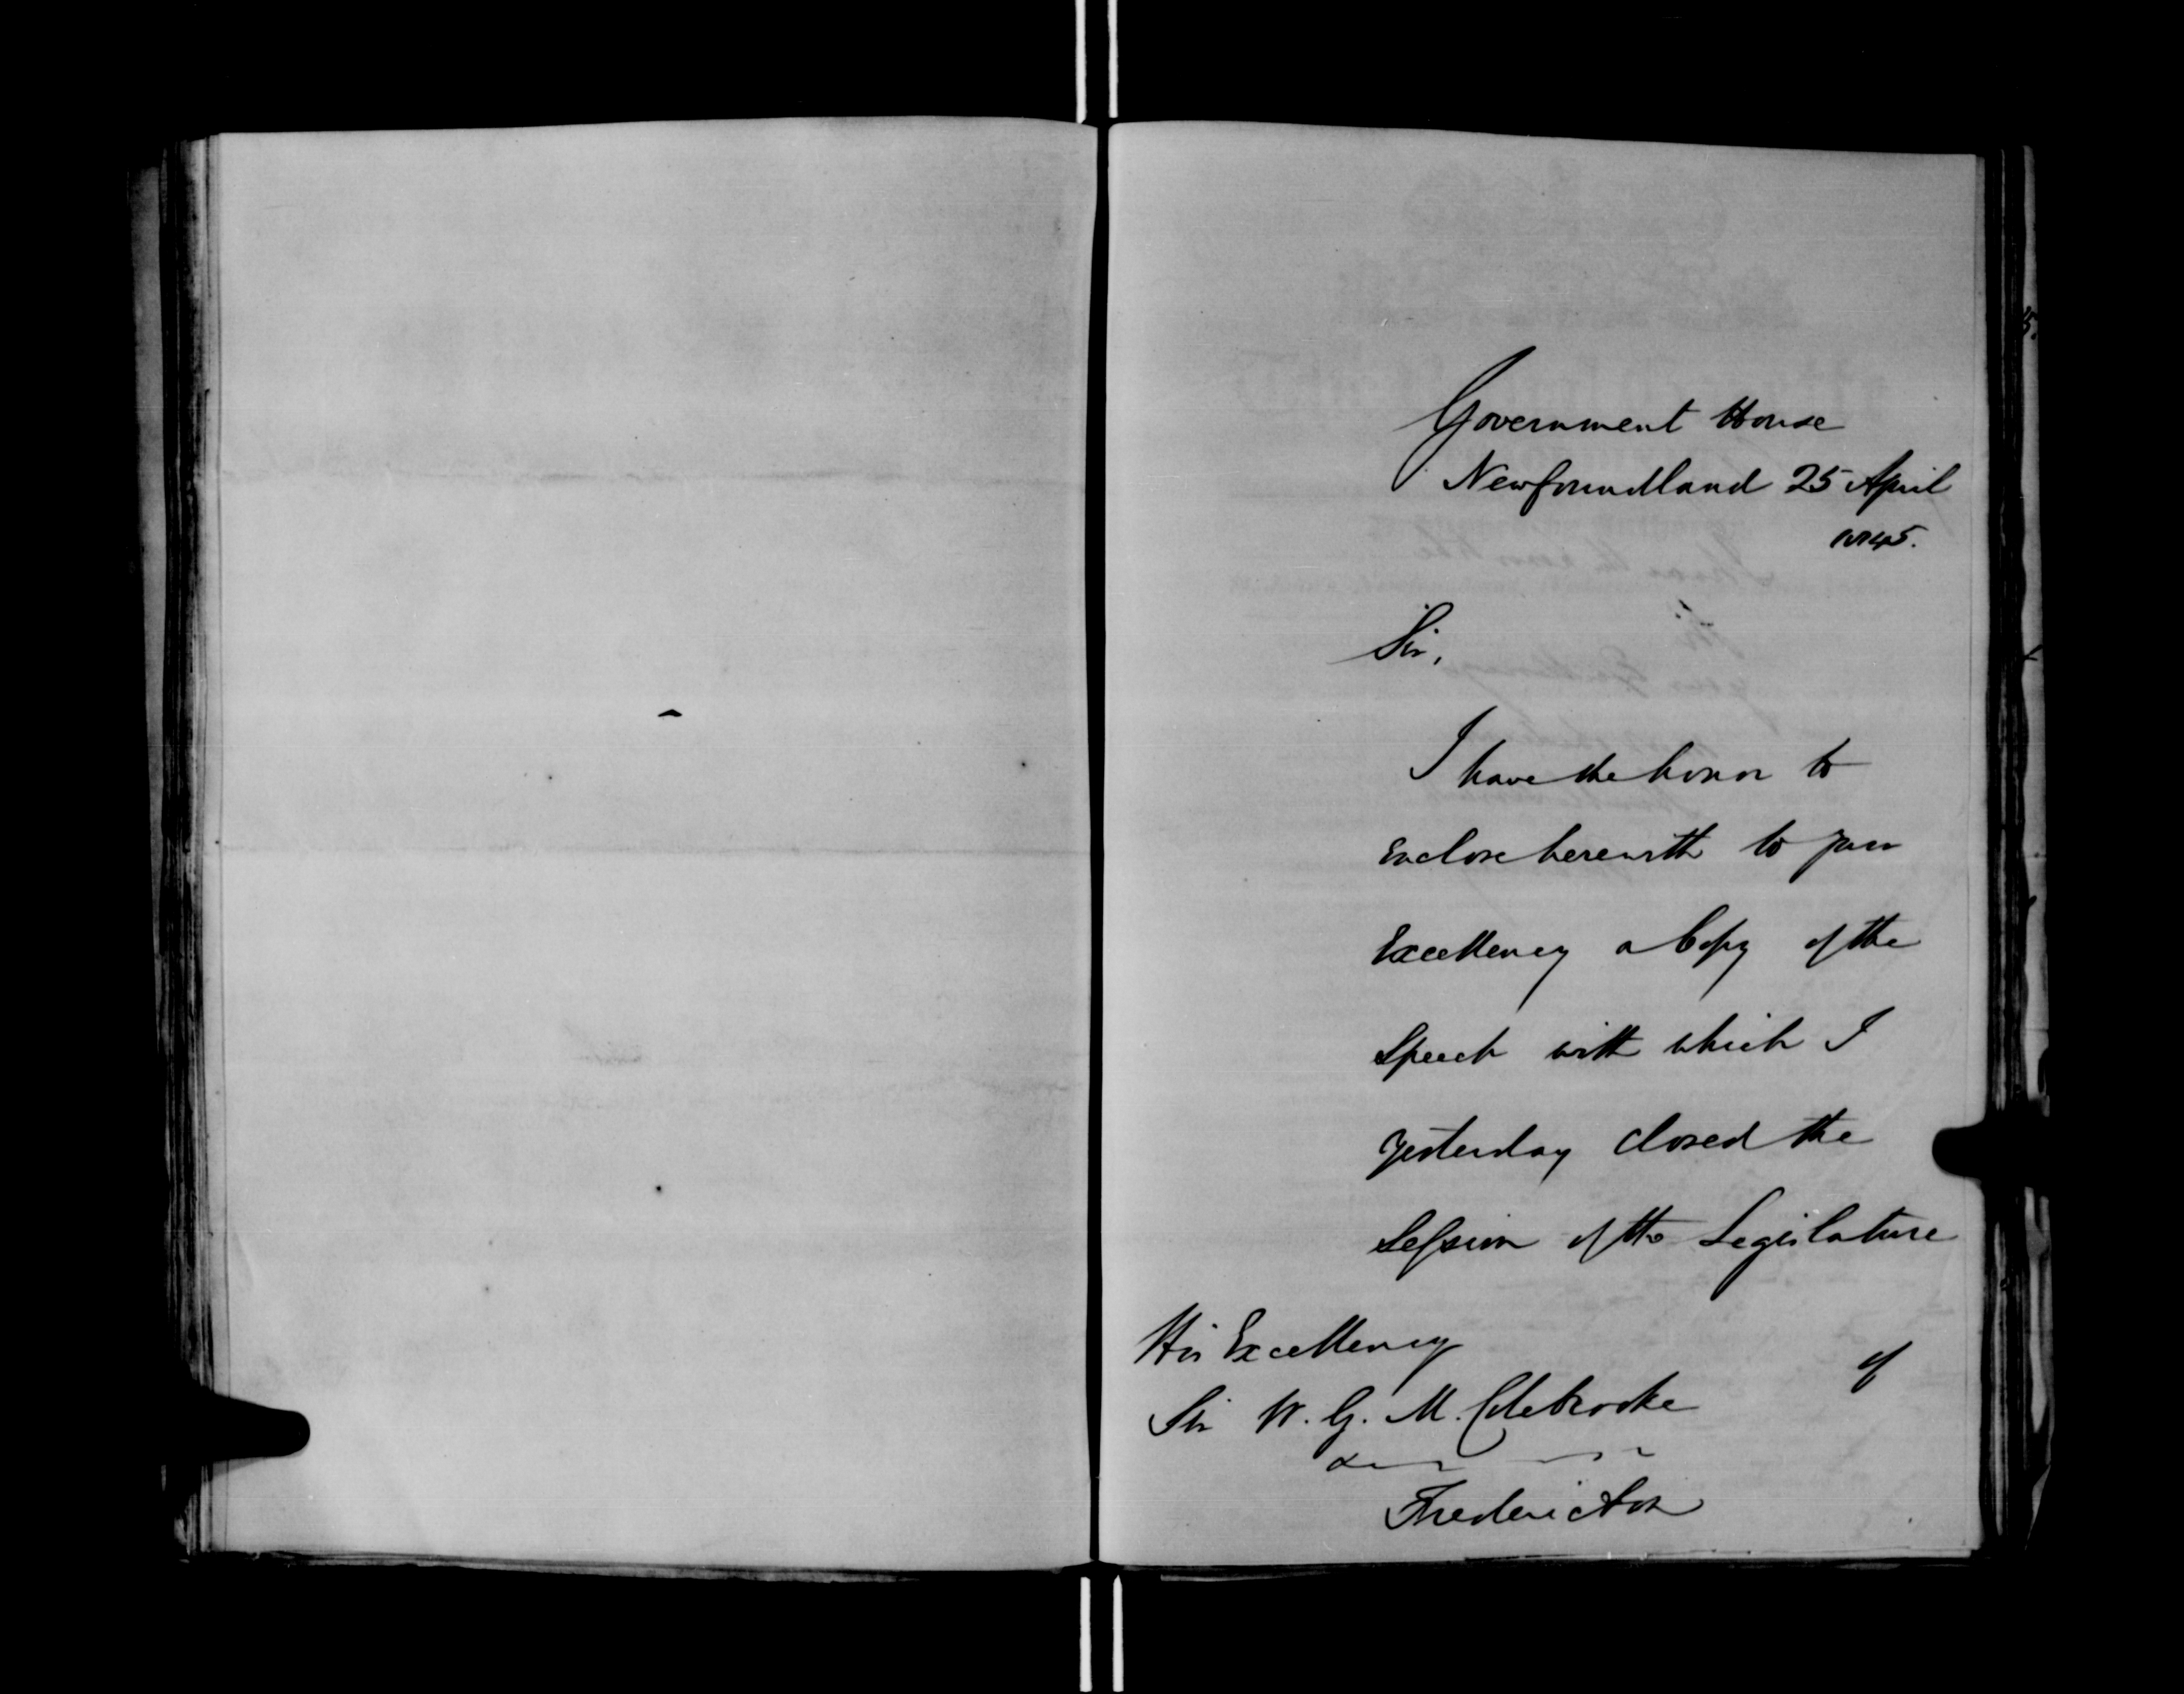 Government House
Newfoundland 25 April
1845.
Sir,
I have the honor to
enclose herewith to your
Excellency a Copy of the
Speech with which I
yesterday closed the
Session of the Legislature
of
His Excellency
Sir W. G. M. Colebrooke
Fredericton